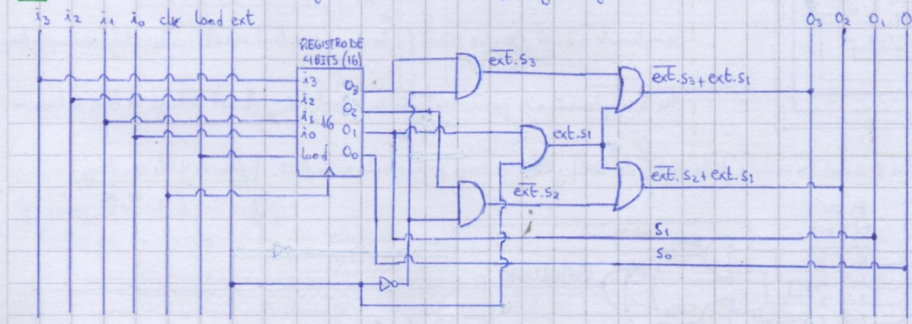 i3 i2 i1 i0 clk load ext O3 O2 O1 O
REGISTRO DE
4BITS (16)
i3 O3
i2 O2
i1 16 O1
i0
load O0
e̅x̅t̅.S3
ext.S1
e̅x̅t̅.S2
e̅x̅t̅.S3+ext.S1
e̅x̅t̅.S2+ext.S1
S1
S0